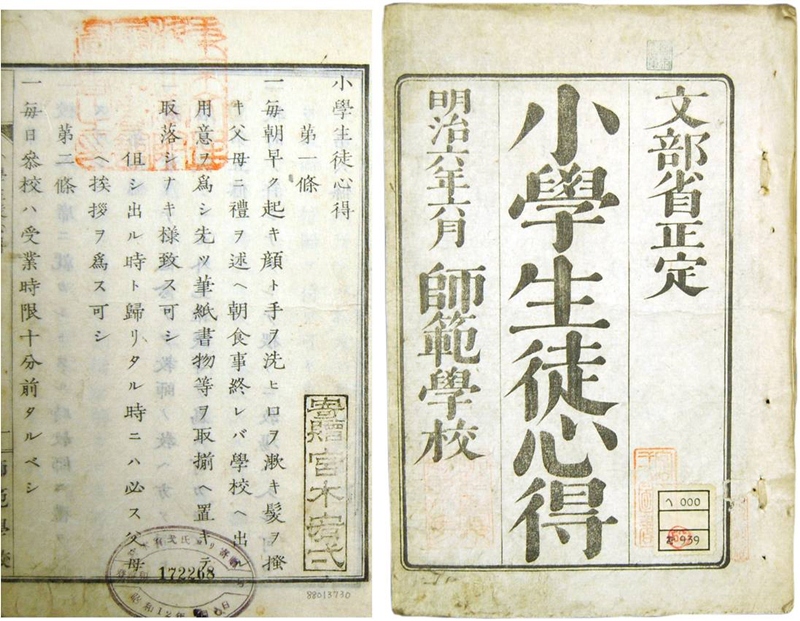 文部省正定
小學生徒心得
明治六年六月 師範學校
小學生徒心得
第一條
一毎朝早ク起キ顔ト手ヲ洗ヒ口ヲ漱キ髮ヲ掻
キ父母ニ禮ヲ述ヘ朝食事終レバ學校ヘ出ル
用意ヲ爲シ先ツ筆紙書物等ヲ取揃ヘ置キテ
取落シナキ様致ス可シ
但シ出ル時ト歸リタル時ニハ必ス父母
ヘ挨拶ヲ爲ス可シ
第二條
一毎日參校ハ受業時限十分前タルベシ
師範學校
寄贈
172268
88013730
ヘ 000